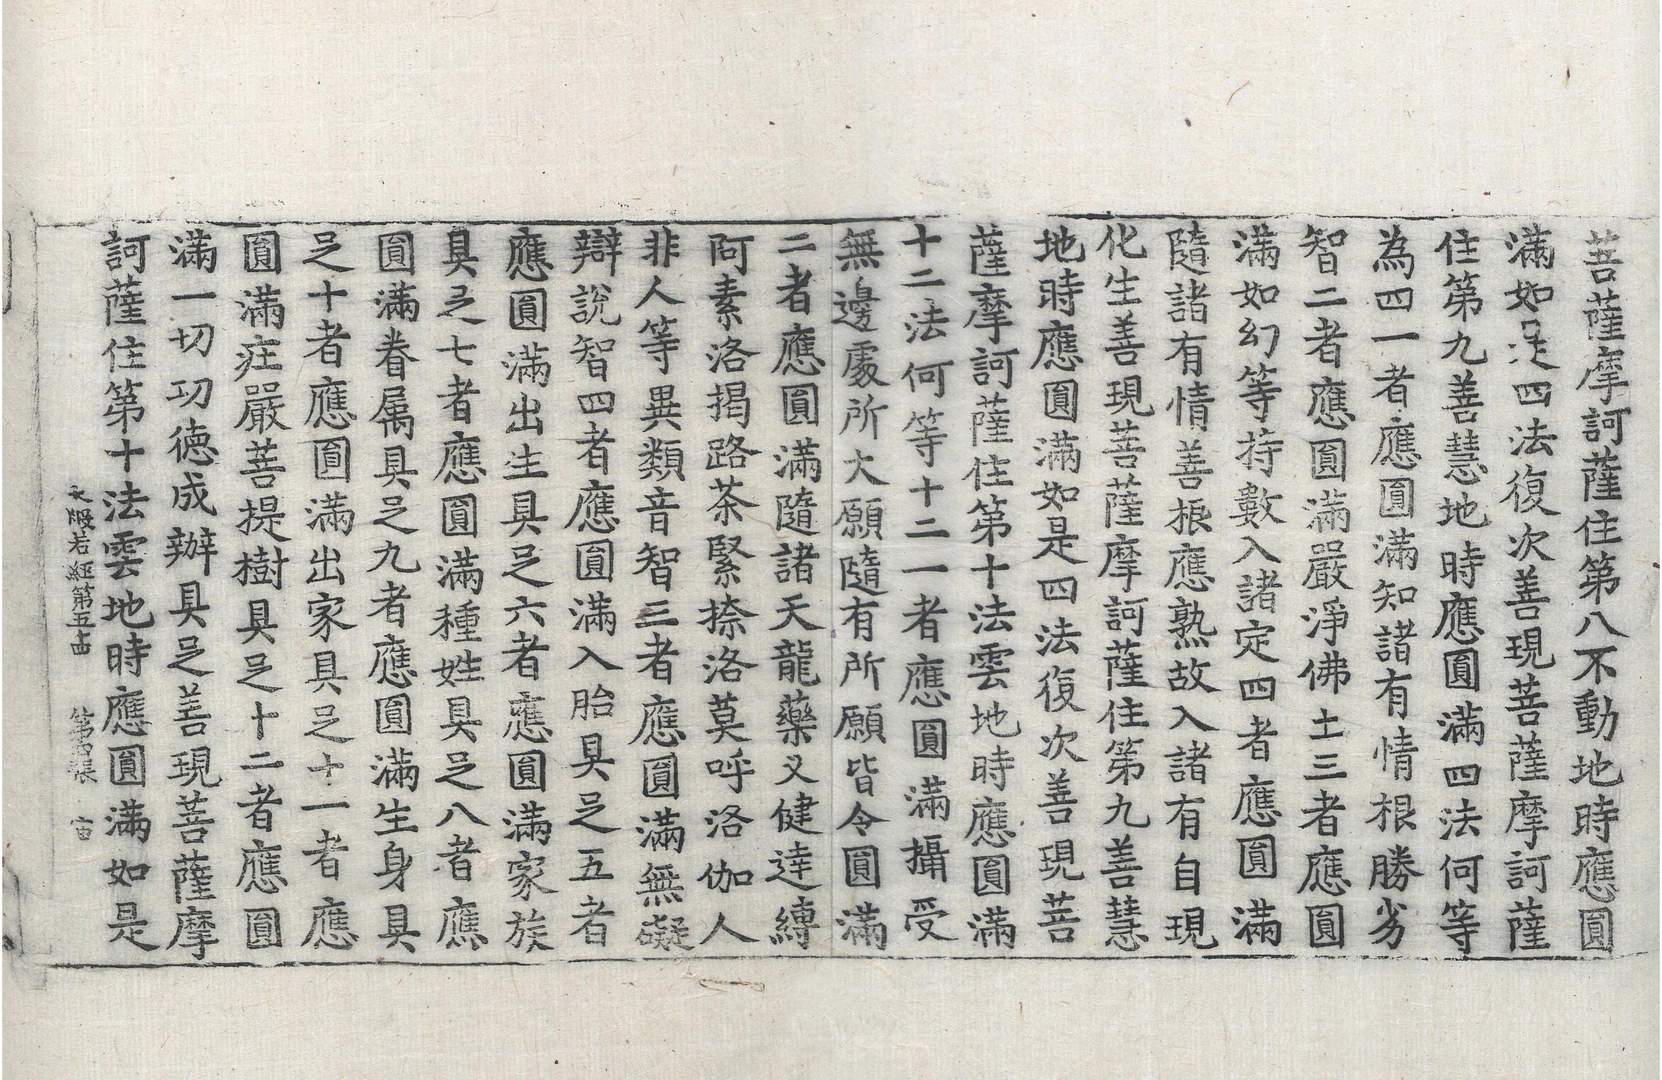 菩薩摩訶薩住第八不動地時應圓
滿如是四法復次善現菩薩摩訶薩
住第九善慧地時應圓滿四法何等
為四一者應圓滿知諸有情根勝劣
智二者應圓滿嚴淨佛土三者應圓
滿如幻等持數入諸定四者應圓滿
隨諸有情善根應熟故入諸有自現
化生善現菩薩摩訶薩住第九善慧
地時應圓滿如是四法復次善現菩
薩摩訶薩住第十法雲地時應圓滿
十二法何等十二一者應圓滿攝受
無邊處所大願隨有所願皆令圓滿
二者應圓滿隨諸天龍藥叉健達縛
阿素洛揭路荼緊捺洛莫呼洛伽人
非人等異類音智三者應圓滿無礙
辯說智四者應圓滿入胎具足五者
應圓滿出生具足六者應圓滿家族
具足七者應圓滿種姓具足八者應
圓滿眷属具足九者應圓滿生身具
足十者應圓滿出家具足十一者應
圓滿莊嚴菩提樹具足十二者應圓
滿一切功德成辦具足善現菩薩摩
訶薩住第十法雲地時應圓滿如是
大般若經第五十四 第四張 宙